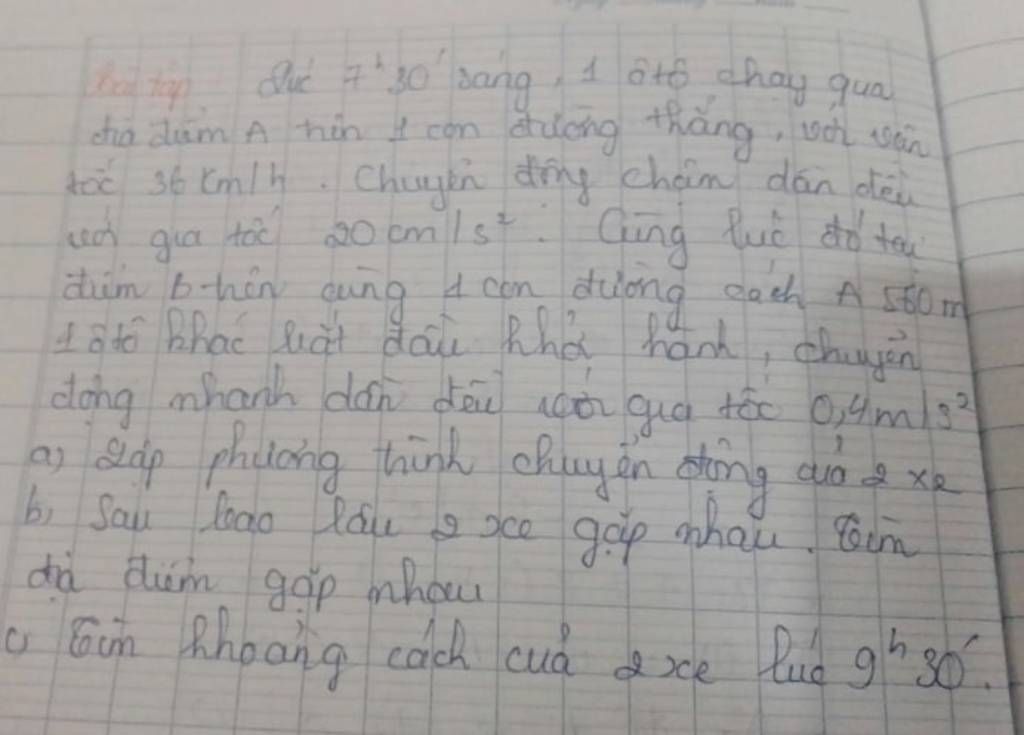 Bài tập Lúc 7h30' sáng, 1 ôtô chạy qua
địa điểm A trên 1 con đường thẳng, với vận
tốc 36 km/h. Chuyển động chậm dần đều
với gia tốc 20 cm/s². Cùng lúc đó tại
điểm B trên cùng 1 con đường cách A 560 m
1 ôtô khác bắt đầu khởi hành, chuyển
động nhanh dần đều với gia tốc 0,4m/s²
a) Lập phương trình chuyển động của 2 xe
b) Sau bao lâu 2 xe gặp nhau. Tìm
địa điểm gặp nhau
c) Tìm khoảng cách của 2 xe lúc 9h30'.